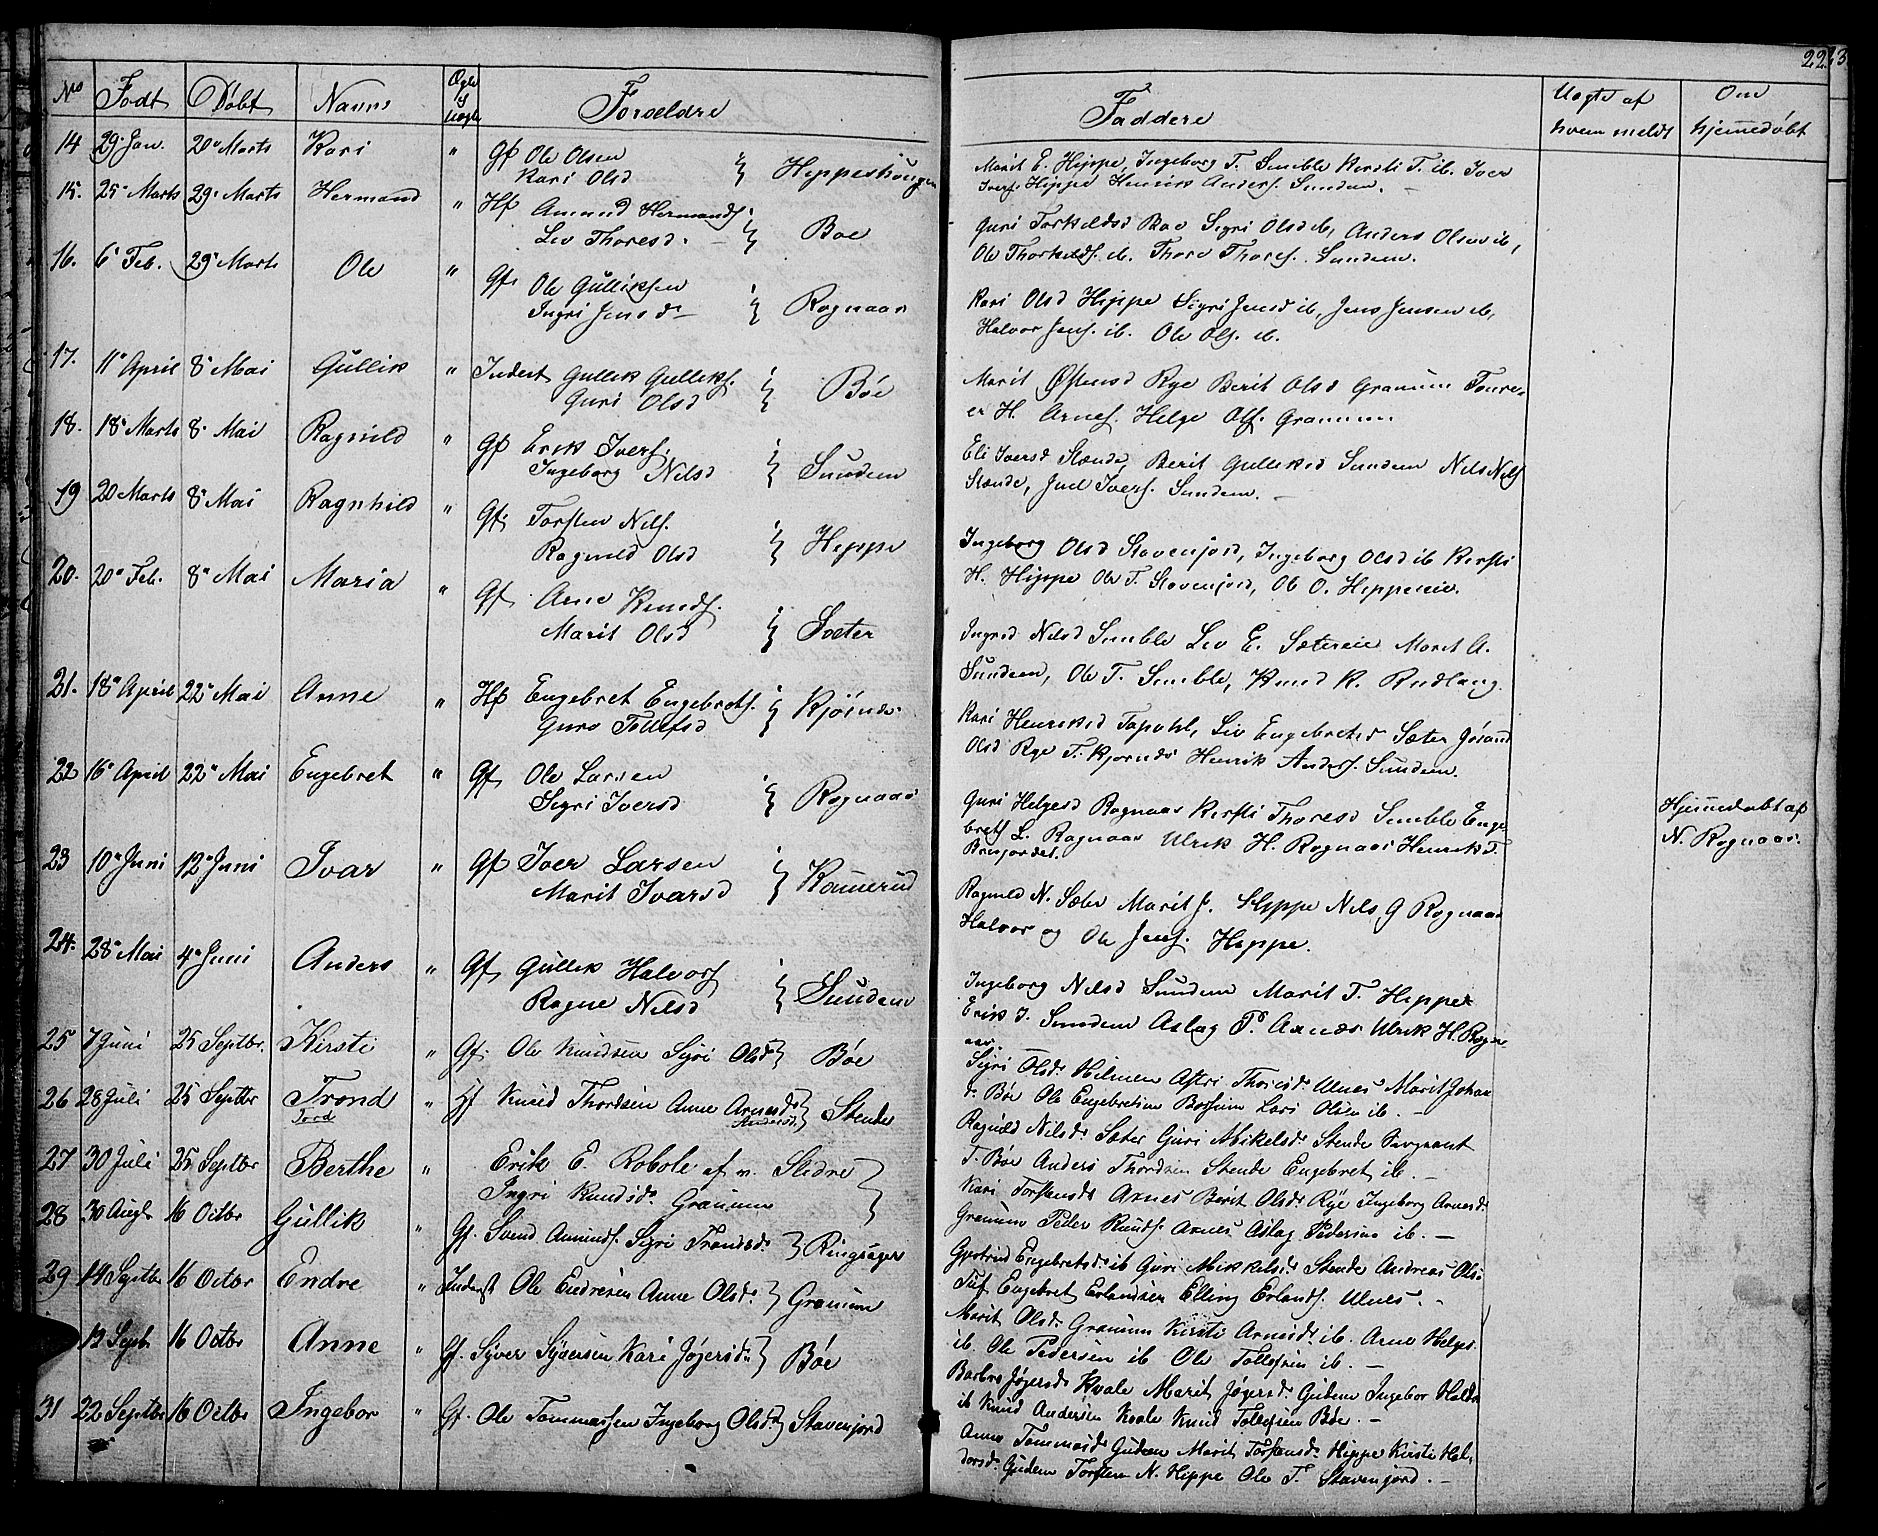 223
No Født Døbt Navne Ægte / Uægte Forældre Faddere Uægte af hvem meldt Om hjemedøbt
14 29. Jan. 20. Marts Kari " Gf Ole Olsen Kari Olsd } Heppeshougen
Marit E. Hippe, Ingeborg T. Semble Kersti T. ib. Iver
Ivers. Hippe Henrik Anders. Sundem. —
15. 25. Marts 29. Marts Hermand " Hf Amund Hermands. Liv Thoresd. } Boe
Guri Torkildsd Boe Sigri Olsd ib, Anders Olsen ib,
Ole Thorkilds. ib. Thore Thores. Sundem.
16. 6. Feb. 29. Marts Ole " Gf. Ole Gulliksen Ingri Jensd } Rognaas
Kari Olsd Hippe Sigri Jensd ib, Jens Jensen ib,
Halvor Jens. ib. Ole Ols. ib.
17. 11. April 8. Mai Gullik " Inderst Gullik Gulliks. Guri Olsd } Bøe
Marit Østensd Rye Berit Olsd Granum
er H. Arnes. Helge Ols. Granum.
18. 18. Marts 8. Mai Ragnild " Gf Erik Ivers. Ingeborg Nilsd } Sundem
Eli Iversd Stende, Berit Gulliksd Sundem Nils Nils.
Stende, Juel Ivers. Sundem. —
19 20 Marts 8. Mai Ragnhild " Gf. Torsten Nils. Ragnild Olsd } Heppe
Ingeborg Olsd Stavenjord, Ingeborg Olsd ib Kersti
H. Hippe Ole T. Stavenjord, Ole O. Hippeeie.
20. 20. Feb. 8. Mai Maria " Gf. Arne Knuds. Marit Olsd } Sæter
Ingrid Nilsd Semble Liv E. Sætereie Marit A.
Sundem, Ole T. Semble, Knud K. Rudlang.
21. 18. April 22. Mai Anne " Hf Engebret Engebrets. Guro Tollefsd } Kjørnds
Kari Henriksd Liv Engebretsd Sæter Gørand
Olsd Rye T. Kjørnds Henrik Anders. Sundem.
22 16. April 22. Mai Engebret " Gf. Ole Larsen Sigri Iversd } Rognaas
Guri Helgesd Rognaas Kersti Thoresd Semble Enge-
brets L. Rognaas Ulrik H. Rognaas Henrik T.
Brujordet.
Hjemedøbt af
N. Rognaas.
23 10. Juni 12. Juni Ivar " Gf Iver Larsen Marit Ivarsd } Kamerud
Ragnild N. Sæter Marit J. Hippe Nils G Rognaas
Halvor og Ole Jens. Heppe.
24. 28. Mai 4. Juni Anders " Gf. Gullik Halvors. Ragne Nilsd } Sundem
Ingeborg Nilsd Sundem Marit T. Hippe
Erik I. Sundem Aslag P. Axnæs Ulrik H. Rogn-
aas.
25 7 Juni 25 Septbr. Kirsti " Gf. Ole Knudsen Sigri Olsd. } Bøe
Sigri Olsd. Hilmen Astri Thoresd. Ulnes Marit Johan
d. Bøe Ole Engebretsen Lars Olsen ib. —
26 28 Juli 25 Septbr Trond Tord " Gf Knud Thordsen Anne Arnesd. Andersd. } Stende
Ragnild Nilsd. Sæter Guri Mikelsd. Stende Sergeant
T. Bøe Anders Thordsen Stende Engebret ib. —
27 30 Juli 25 Septbr Berthe " Erik E. Robole af v. Slidre Ingri Knudsd. Granum }
Kari Torstensd. Axnes Berit Olsd. Rye Ingeborg Arnesd.
Granum Peder Knuds. Axnes Aslag Pedersen ib. —
28 30 Augt. 16 Octbr Gullik " Gf. Svend Amunds. Sigri Trondsd. } Ringsager
Gjertrud Engebretsd. ib Guri Mikkelsd. Stende Andreas Ols.
Tuf Engebret Erlandsen Elling Erlands. Ulnes. —
29 14 Septbr 16 Octbr Endre " Inderst Ole Endresen Anne Olsd. } Granum
Marit Olsd. Granum Kirsti Arnesd. ib. Arne Helges.
ib. Ole Pedersen ib Ole Tollefsen ib. —
12 Septr. 16 Octbr Anne " Gf. Syver Syversen Kari Jøgersd. } Bøe
Barbro Jøgersd. Kvale Marit Jøgersd. Gudem Ingebor Haldo
ib Knud Andersen Kvale Knud Tollefsen Bøe. —
31 22 Septbr 16 Octbr Ingebor " Gf. Ole Tommassen Ingeborg Olsd. } Stavenjord
Anne Tommasd. Gudem Marit Torstensd. Hippe Kirsti Hal-
dorsd. Gudem Torsten N. Hippe Ole T. Stavenjord. —